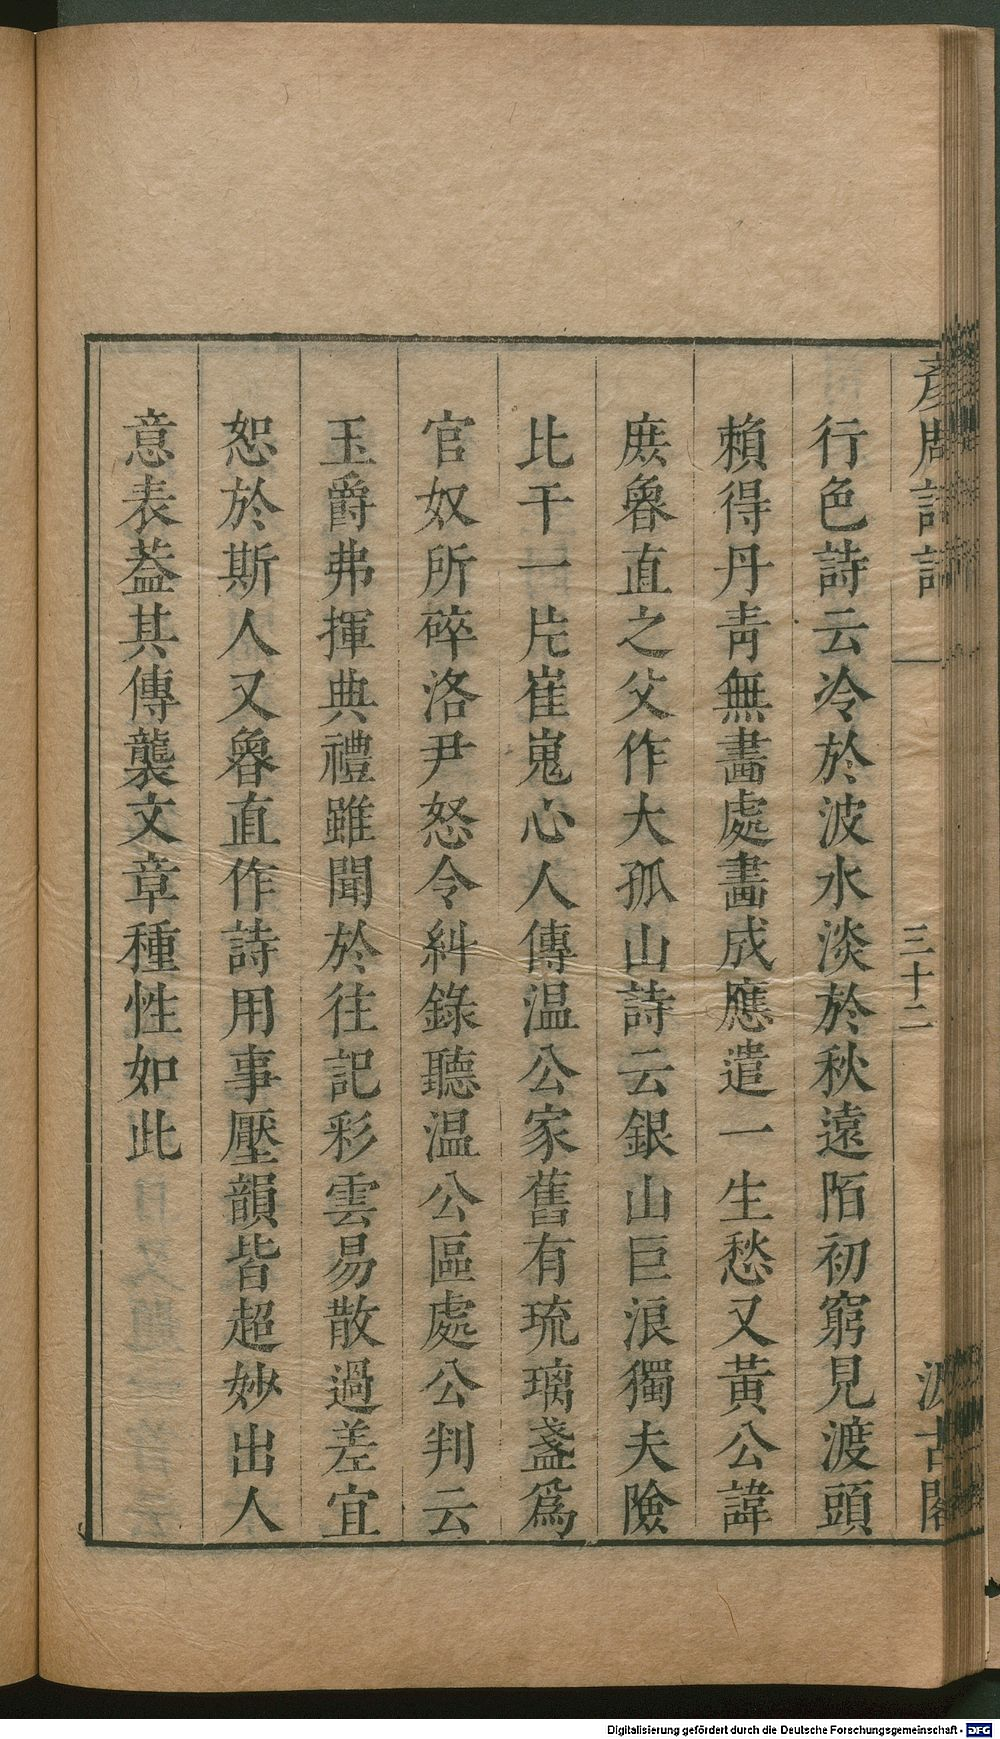 彥周詩話
三十二
汲古閣
行色詩云冷於波水淡於秋遠陌初窮見渡頭
賴得丹靑無畵處畵成應遣一生愁又黃公諱
庶魯直之父作大孤山詩云銀山巨浪獨夫險
比干一片崔嵬心人傳温公家舊有琉璃盞爲
官奴所碎洛尹怒令糾錄聽温公區處公判云
玉爵弗揮典禮雖聞於往記彩雲易散過差宜
恕於斯人又魯直作詩用事壓韻皆超妙出人
意表葢其傳襲文章種性如此
Digitalisierung gefördert durch die Deutsche Forschungsgemeinschaft - DFG